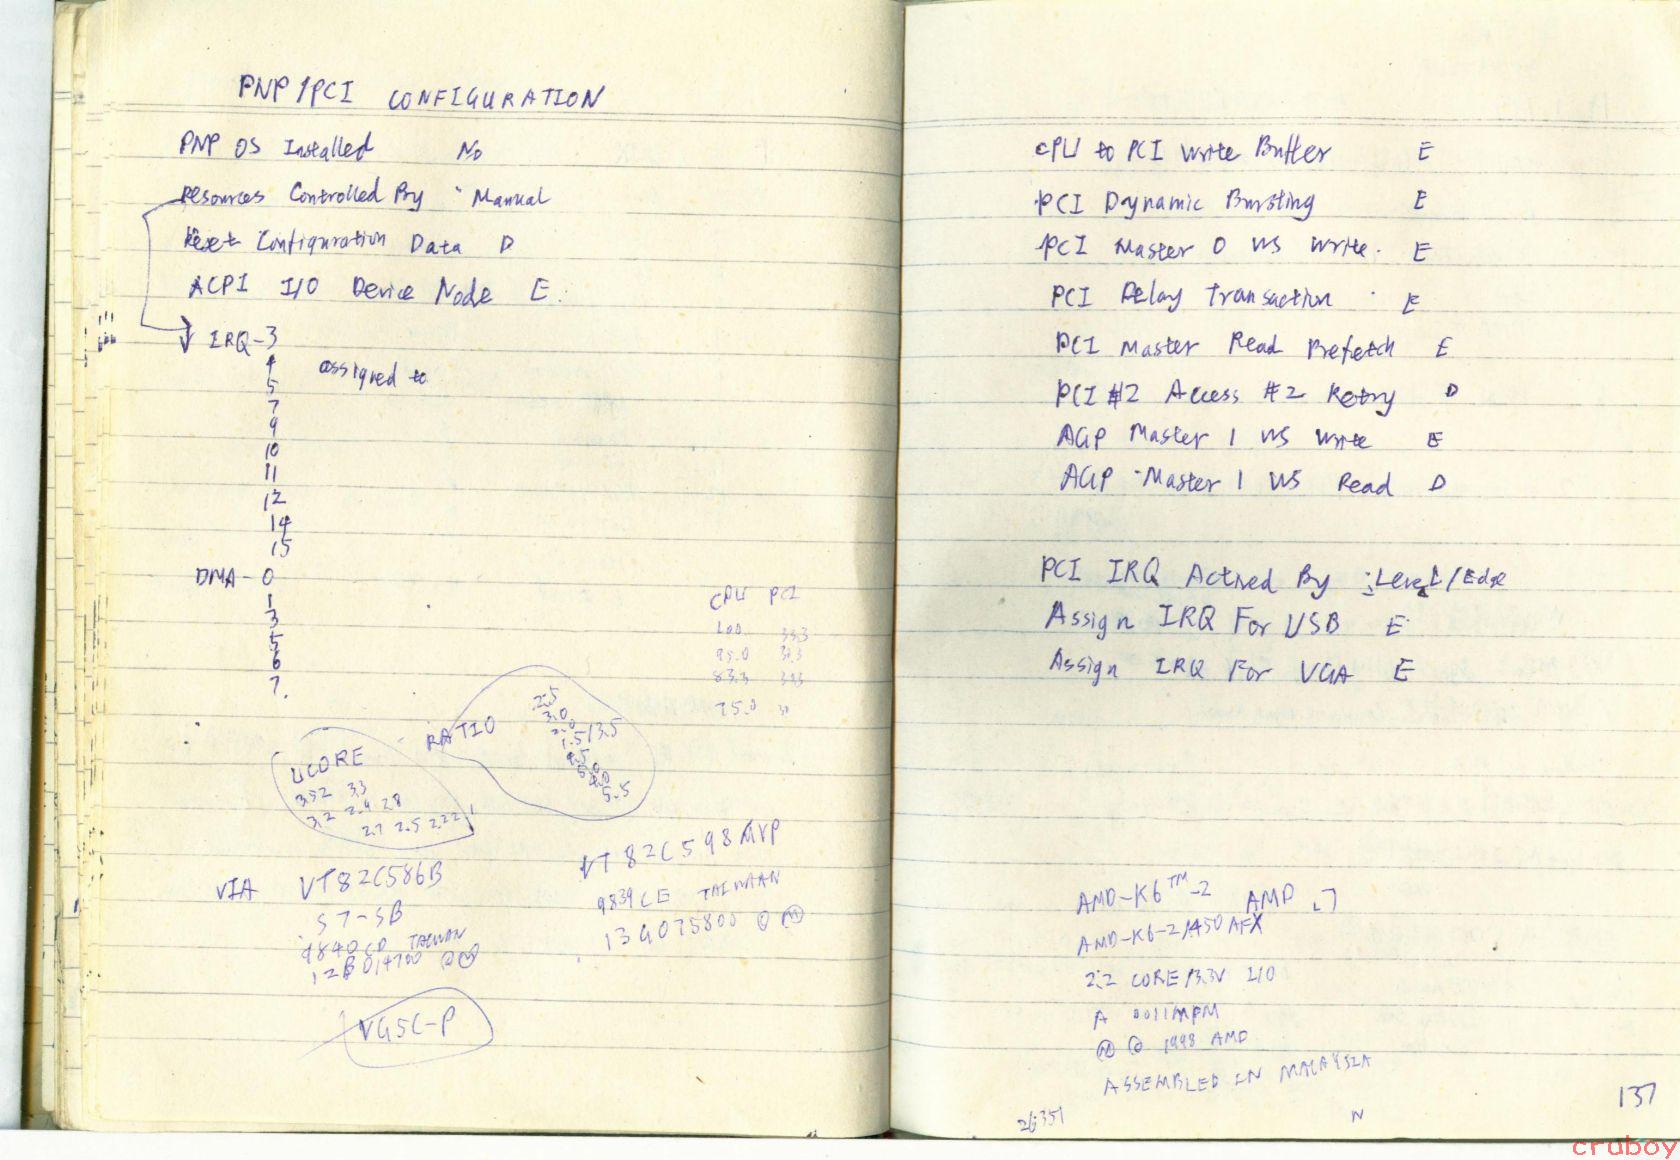 PNP/PCI CONFIGURATION
PNP OS Installed No
Resources Controlled By Manual
Reset Configuration Data D
ACPI I/O Device Node E
IRQ-3
4 assigned to
5
7
9
10
11
12
14
15
DMA-0
1
3
5
6
7.
CPU PCI
100 33.3
95.0
83.3
75.0 30
RATIO
2.5
3.0
1.5/3.5
5.5
VCORE
3.52 3.3
3.2 2.9 2.8
2.7 2.5 2.2
VIA VT82C586B
S7-SB
9840CD TAIWAN
VT82C598MVP
9839CE TAIWAN
13G075800 © Ⓜ
VG5C-P
CPU to PCI Write Buffer E
PCI Dynamic Bursting E
PCI Master 0 WS Write E
PCI Delay Transaction E
PCI Master Read Prefetch E
PCI #2 Access #2 Retry D
AGP Master 1 WS Write E
AGP Master 1 WS Read D
PCI IRQ Actived By : Level/Edge
Assign IRQ For USB E
Assign IRQ For VGA E
AMD-K6™-2 AMD
AMD-K6-2/450AFX
2.2 CORE/3.3V I/O
A 0011MPM
Ⓜ © 1998 AMD
ASSEMBLED IN MALAYSIA
26351
N
137
cruboy